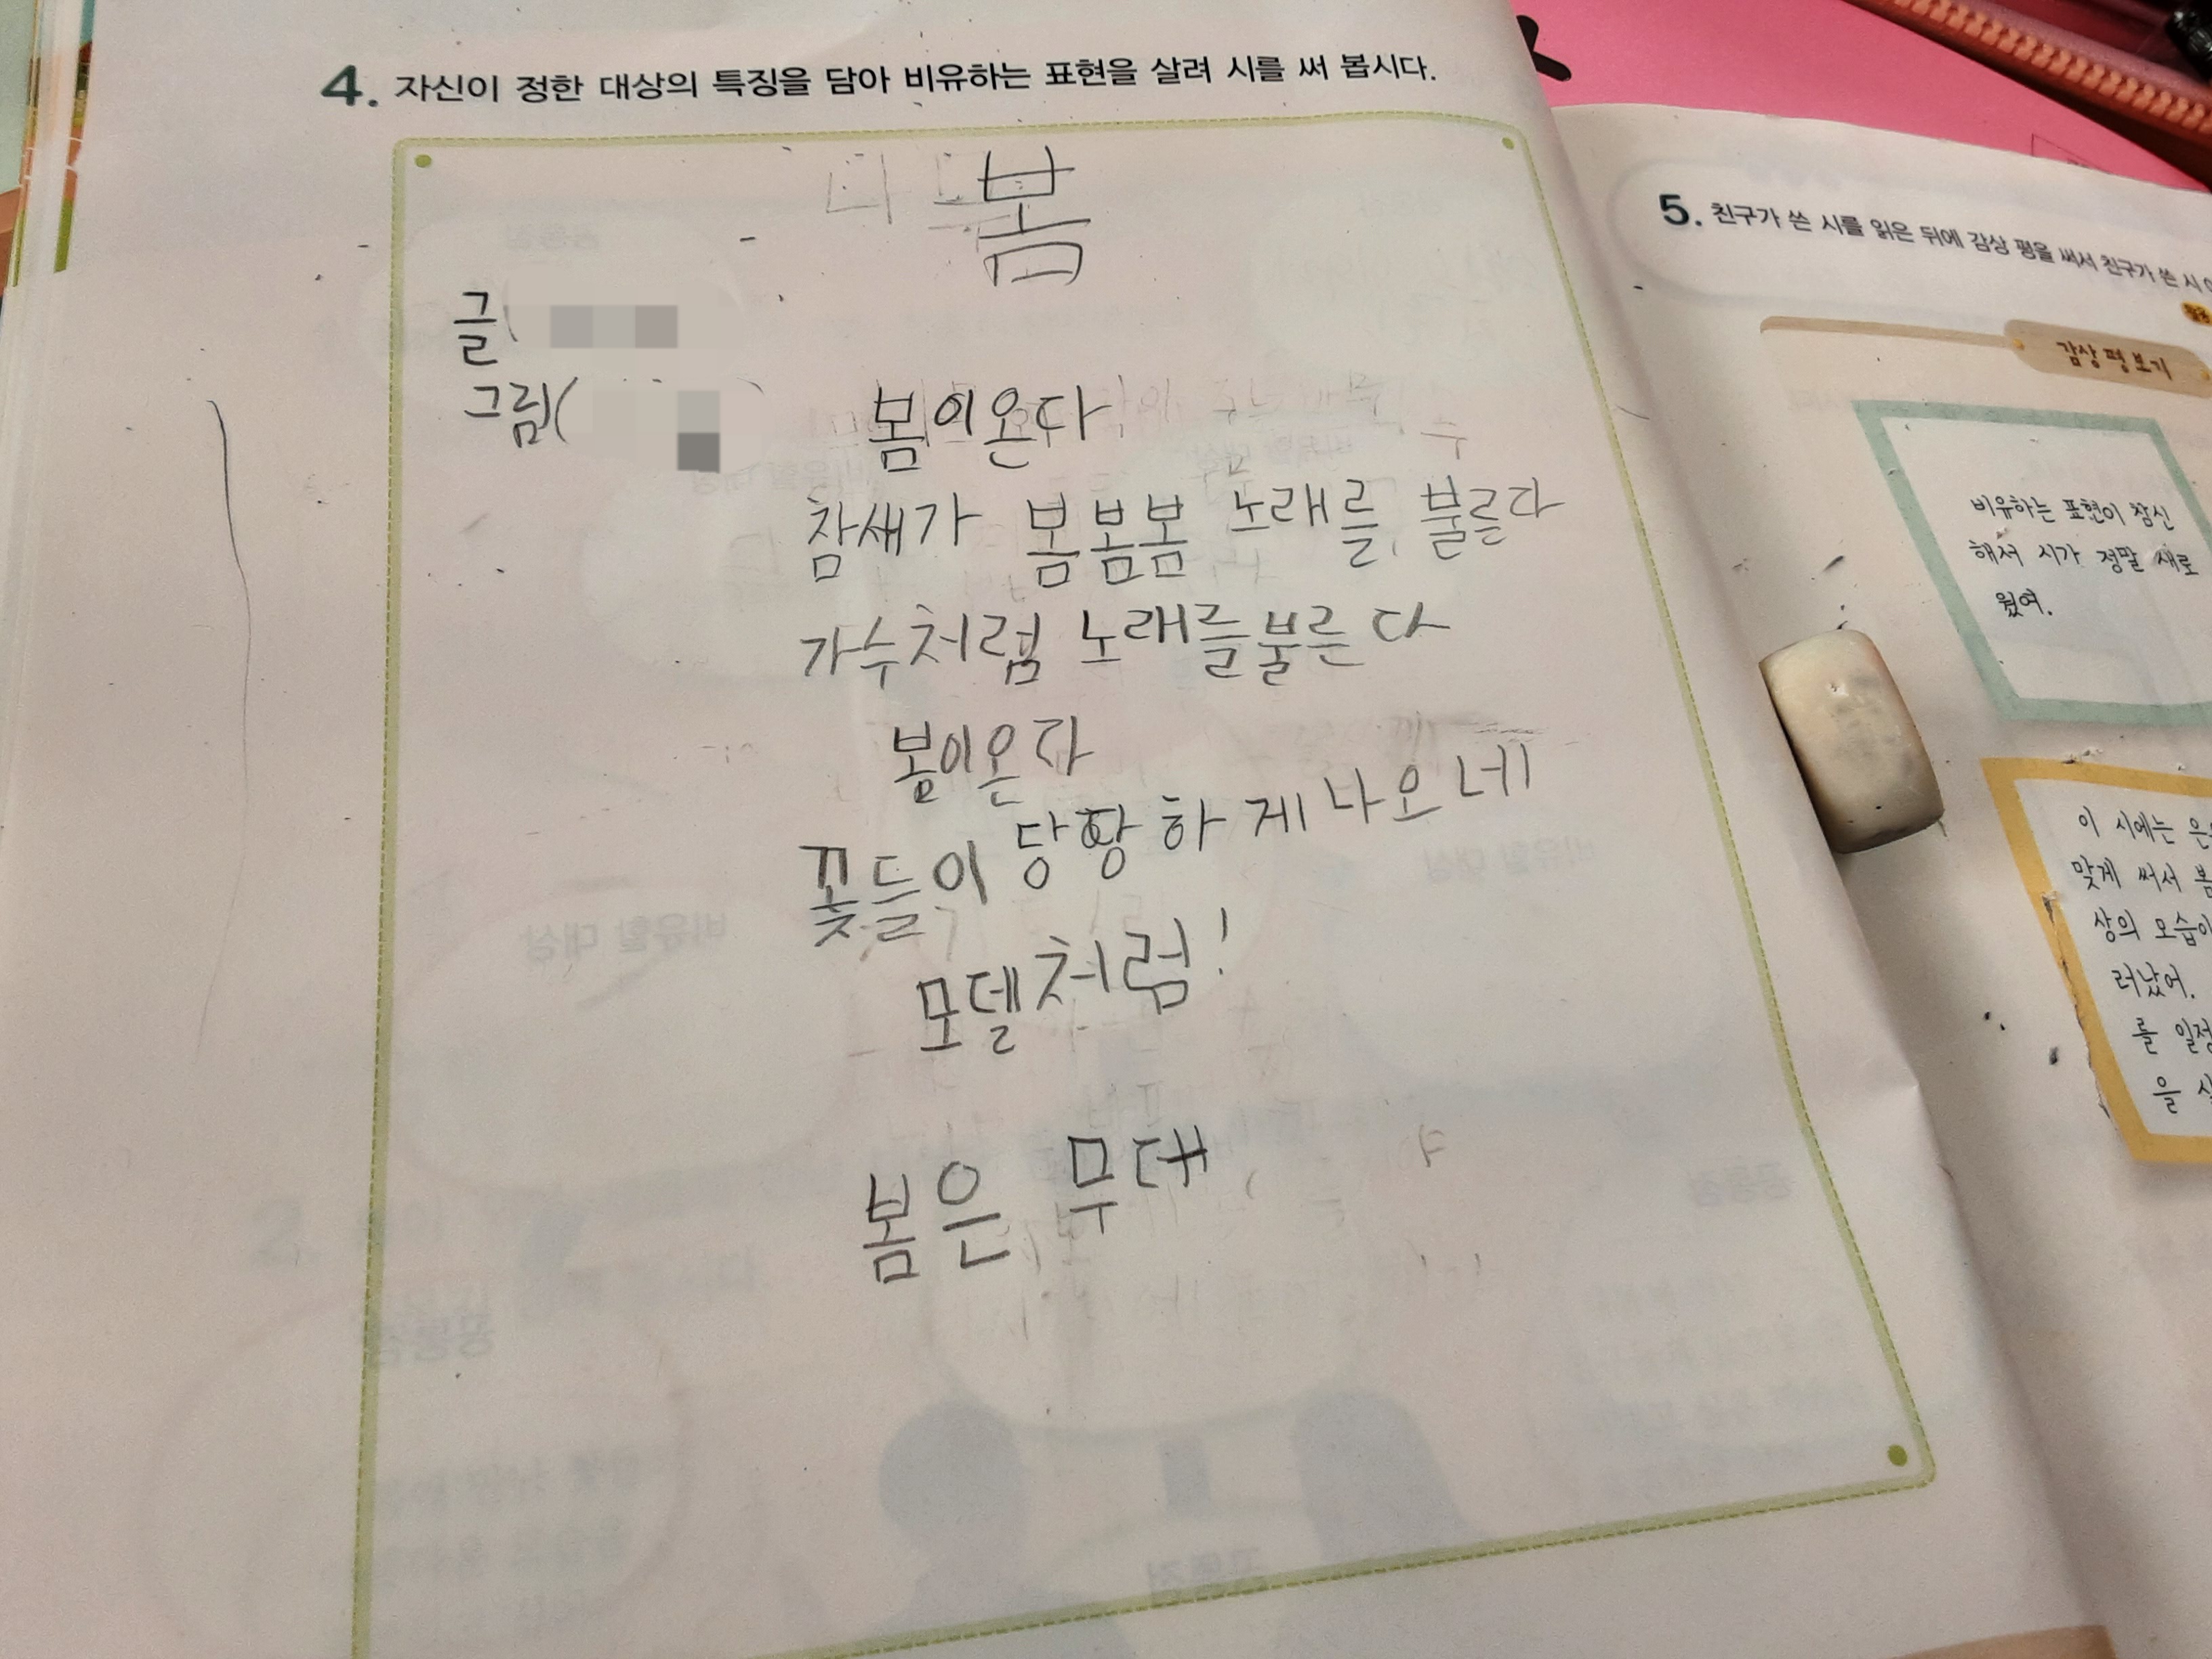 4. 자신이 정한 대상의 특징을 담아 비유하는 표현을 살려 시를 써 봅시다.
봄
글(
그림(
봄이온다
참새가 봄봄봄 노래를 불른다
가수처럼 노래를불른다
봄이온다
꽃들이 당황하게나오네
모델처럼!
봄은 무대
5. 친구가 쓴 시를 읽은 뒤에 감상 평을 써서 친구가 쓴 시
감상 평 보기
비유하는 표현이 참신
해서 시가 정말 새로
웠어.
이 시에는
맞게 써서
상의 모습이
러났어.
를 일정
을